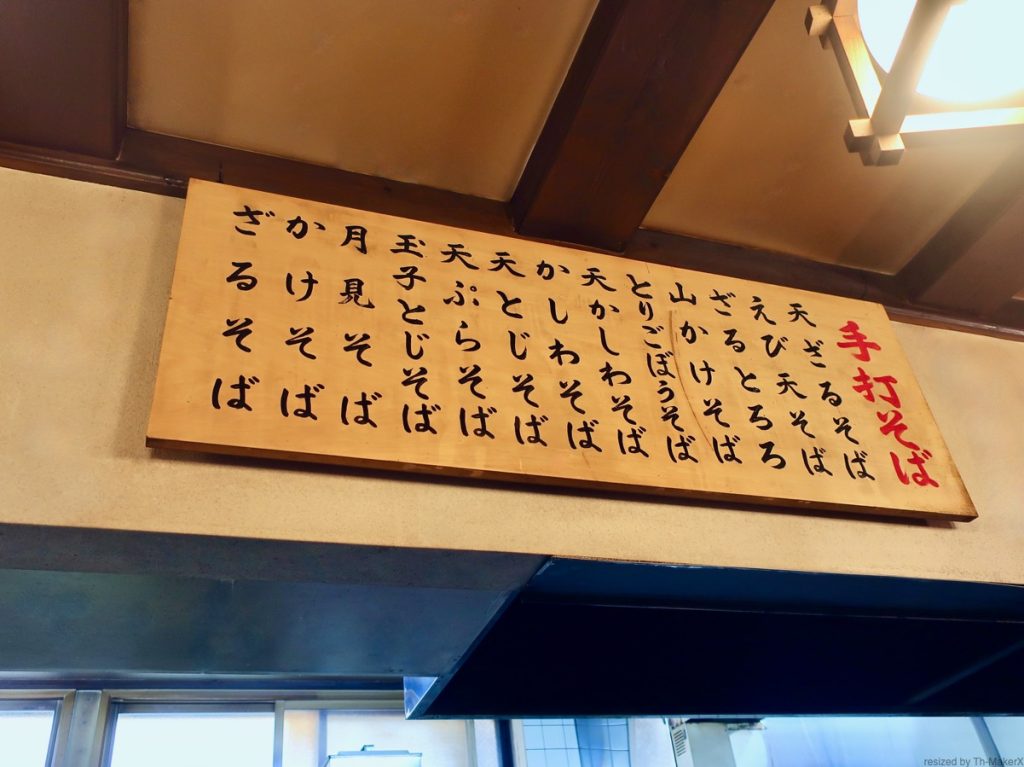 手打そば
天ざるそば
えび天そば
ざるとろろ
山かけそば
とりごぼうそば
天かしわそば
かしわそば
天とじそば
天ぷらそば
玉子とじそば
月見そば
かけそば
ざるそば
resized by Th-MakerX